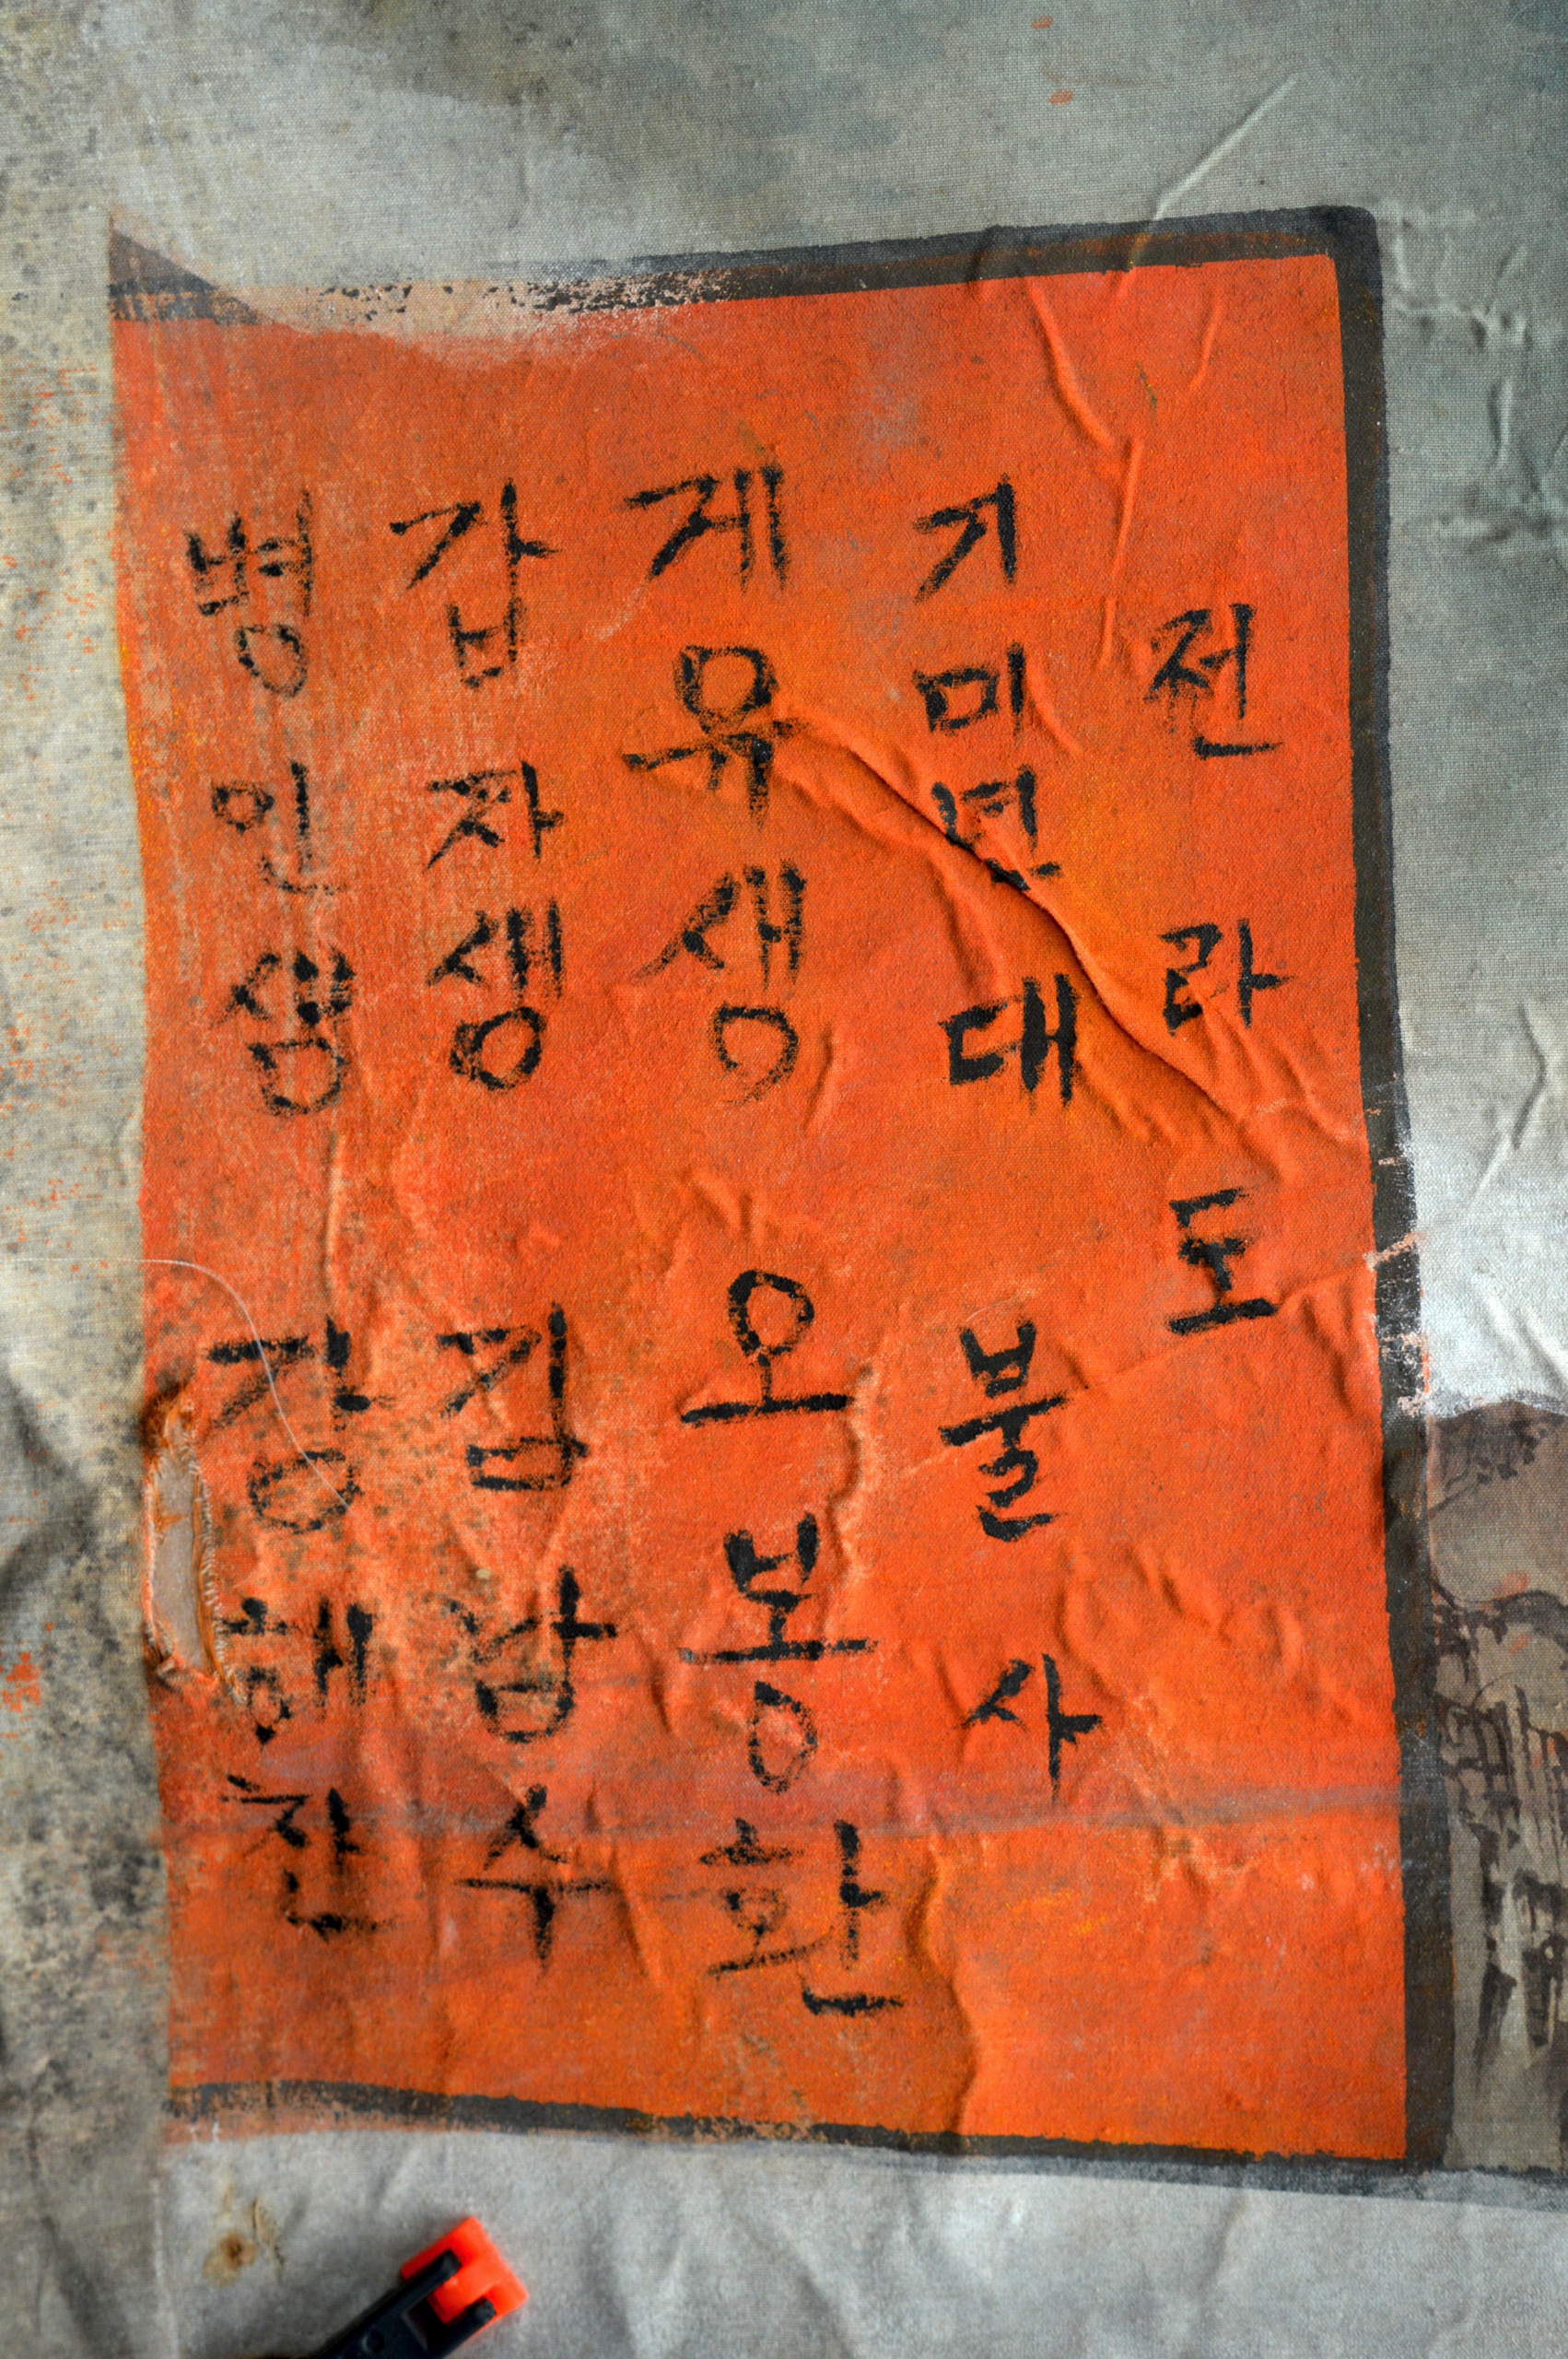 전라도
기미년대 불사
게유생 오봉환
갑자생 김남수
병인생 강해찬